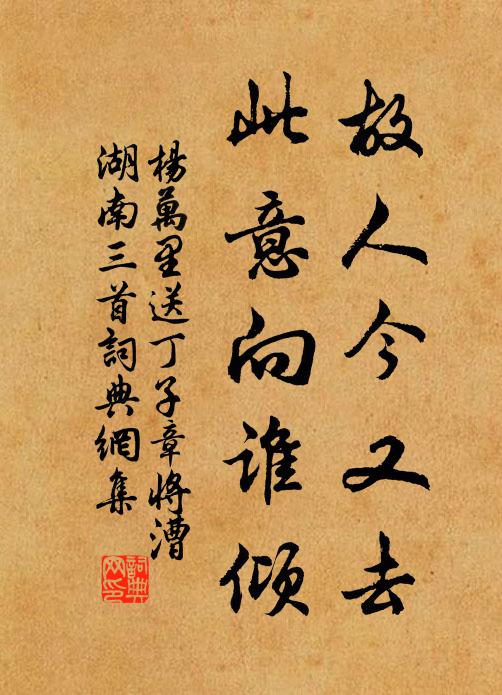 故人今又去
此意向谁倾
楊萬里送丁子章將漕
湖南三首詞典網集
詞典
网印